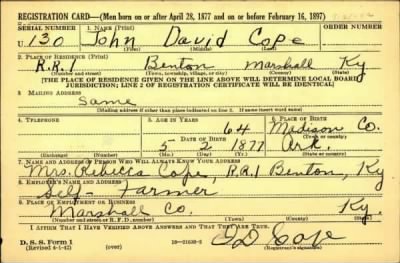 REGISTRATION CARD—(Men born on or after April 28, 1877 and on or before February 16, 1897)
SERIAL NUMBER 1. NAME (Print) ORDER NUMBER
U 130 John David Cope
(First) (Middle) (Last)
2. PLACE OF RESIDENCE (Print)
R.R.1 Benton Marshall Ky
(Number and street) (Town, township, village, or city) (County) (State)
[THE PLACE OF RESIDENCE GIVEN ON THE LINE ABOVE WILL DETERMINE LOCAL BOARD
JURISDICTION; LINE 2 OF REGISTRATION CERTIFICATE WILL BE IDENTICAL]
3. MAILING ADDRESS
Same
[Mailing address if other than place indicated on line 2. If same insert word same]
4. TELEPHONE 5. AGE IN YEARS 6. PLACE OF BIRTH
64 Madison Co.
DATE OF BIRTH (Town or county)
5 2 1877 Ark.
(Exchange) (Number) (Mo.) (Day) (Yr.) (State or country)
7. NAME AND ADDRESS OF PERSON WHO WILL ALWAYS KNOW YOUR ADDRESS
Mrs. Rebecca Cope, R.R.1 Benton, Ky
8. EMPLOYER'S NAME AND ADDRESS
Self- Farmer
9. PLACE OF EMPLOYMENT OR BUSINESS
Marshall Co. Ky.
(Number and street or R. F. D. number) (Town) (County) (State)
I AFFIRM THAT I HAVE VERIFIED ABOVE ANSWERS AND THAT THEY ARE TRUE.
D. S. S. Form 1
(Revised 4-1-42) (over) 16—21630-2 J D Cope
(Registrant's signature)